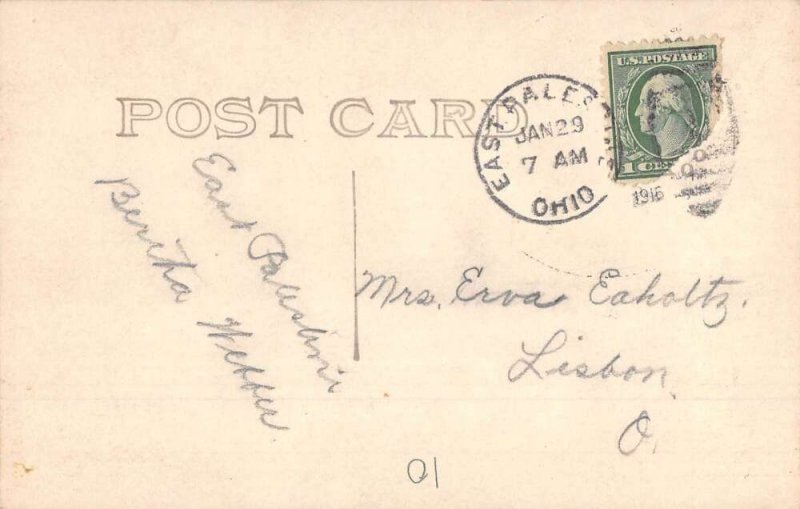 POST CARD
U.S. POSTAGE
1 CE
EAST PALESTINE
JAN 29
7 AM
OHIO
1916
East Palestine
Bertha Webber
Mrs. Erva Eaholtz.
Lisbon
O.
01